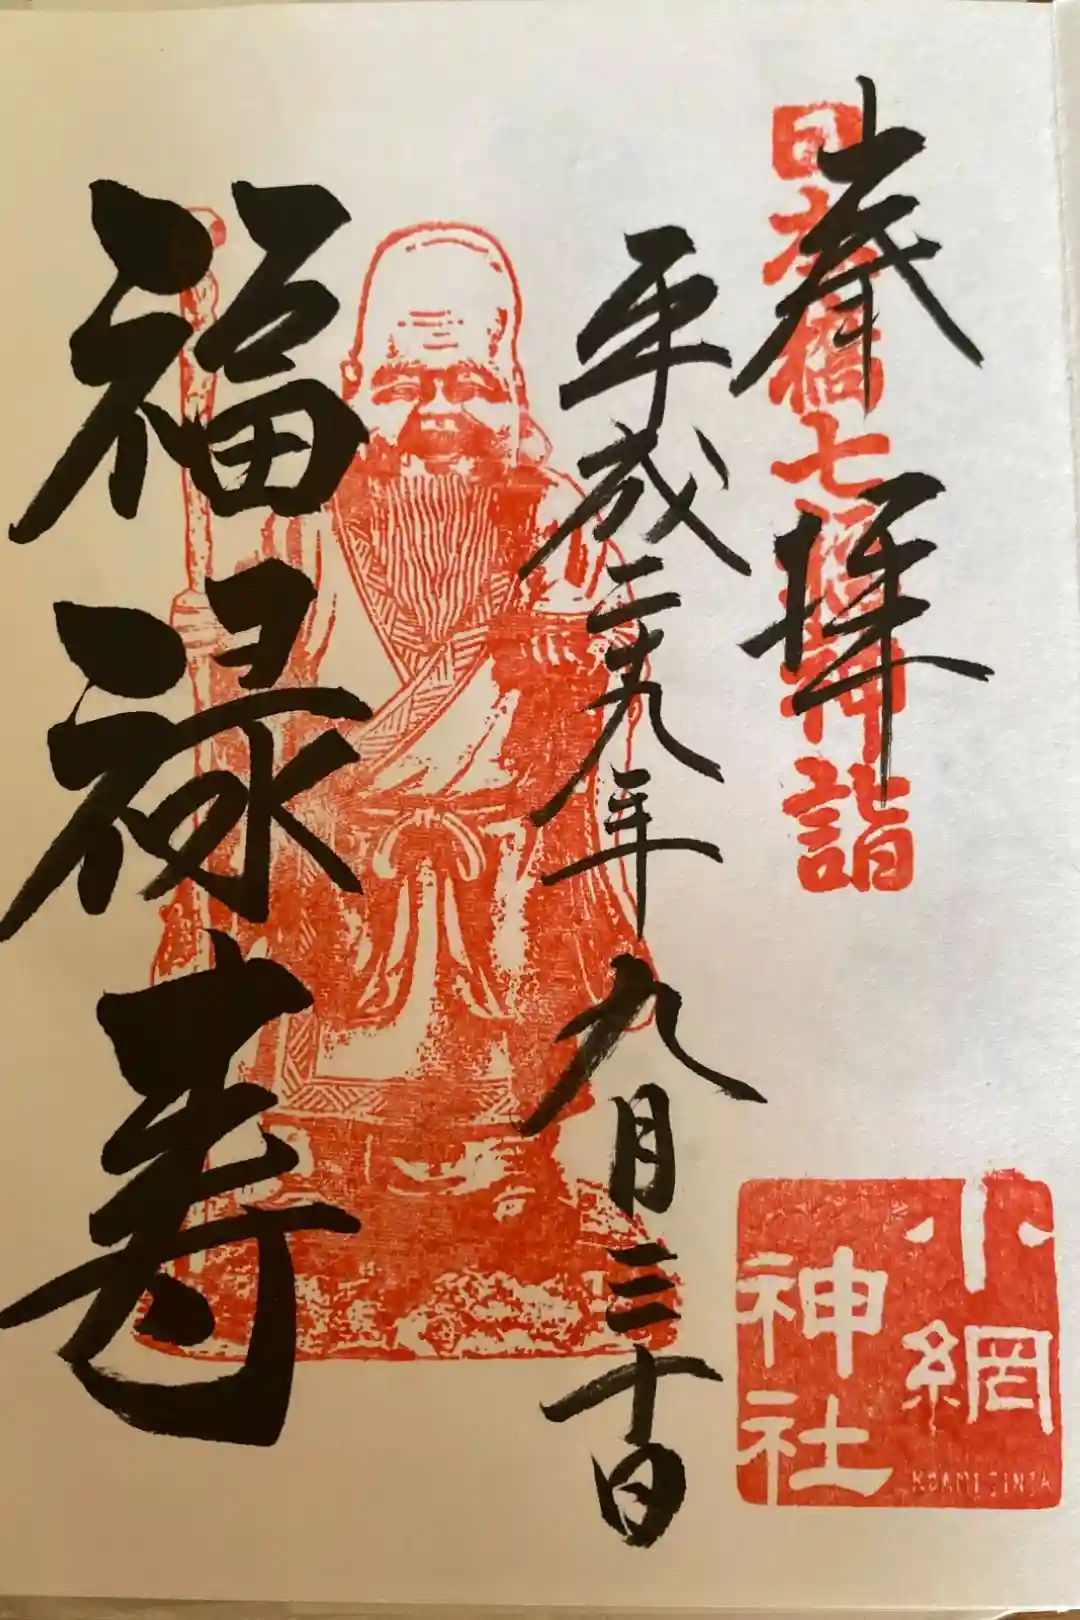 奉拝
日本橋七福神詣
小網神社
KOAMI JINJA
平成二十九年九月三十日
福禄寿